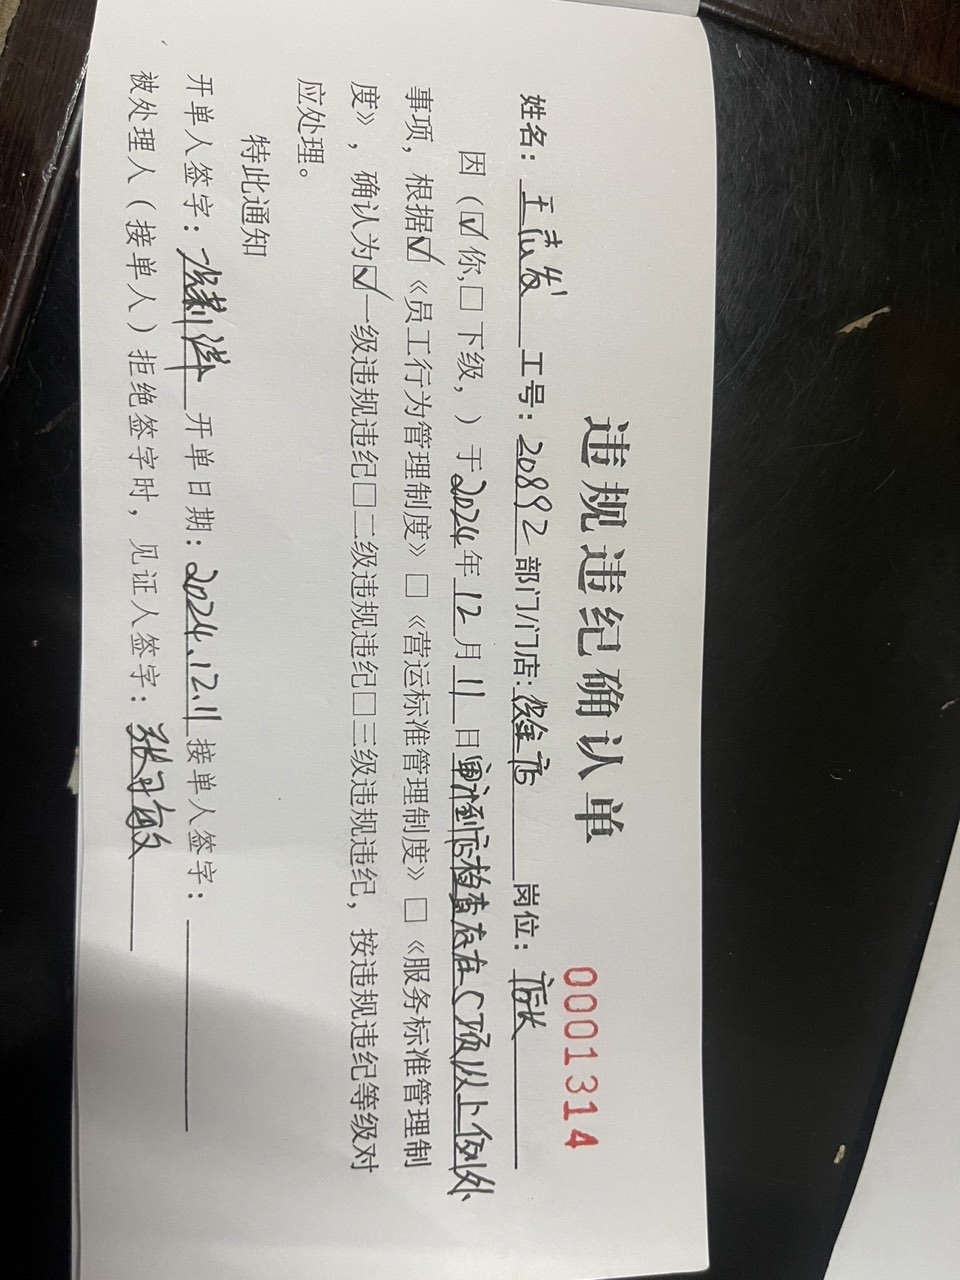 违规违纪确认单
0001314
姓名：王志发 工号：20892 部门/门店：徐金店 岗位：店长
因（☑你，□下级，）于2024年12月11日到店检查存在C项以上例外
事项，根据☑《员工行为管理制度》□《营运标准管理制度》□《服务标准管理制
度》，确认为☑一级违规违纪□二级违规违纪□三级违规违纪，按违规违纪等级对
应处理。
特此通知
开单人签字： 开单日期：2024.12.11 接单人签字：
被处理人（接单人）拒绝签字时，见证人签字：张习敏